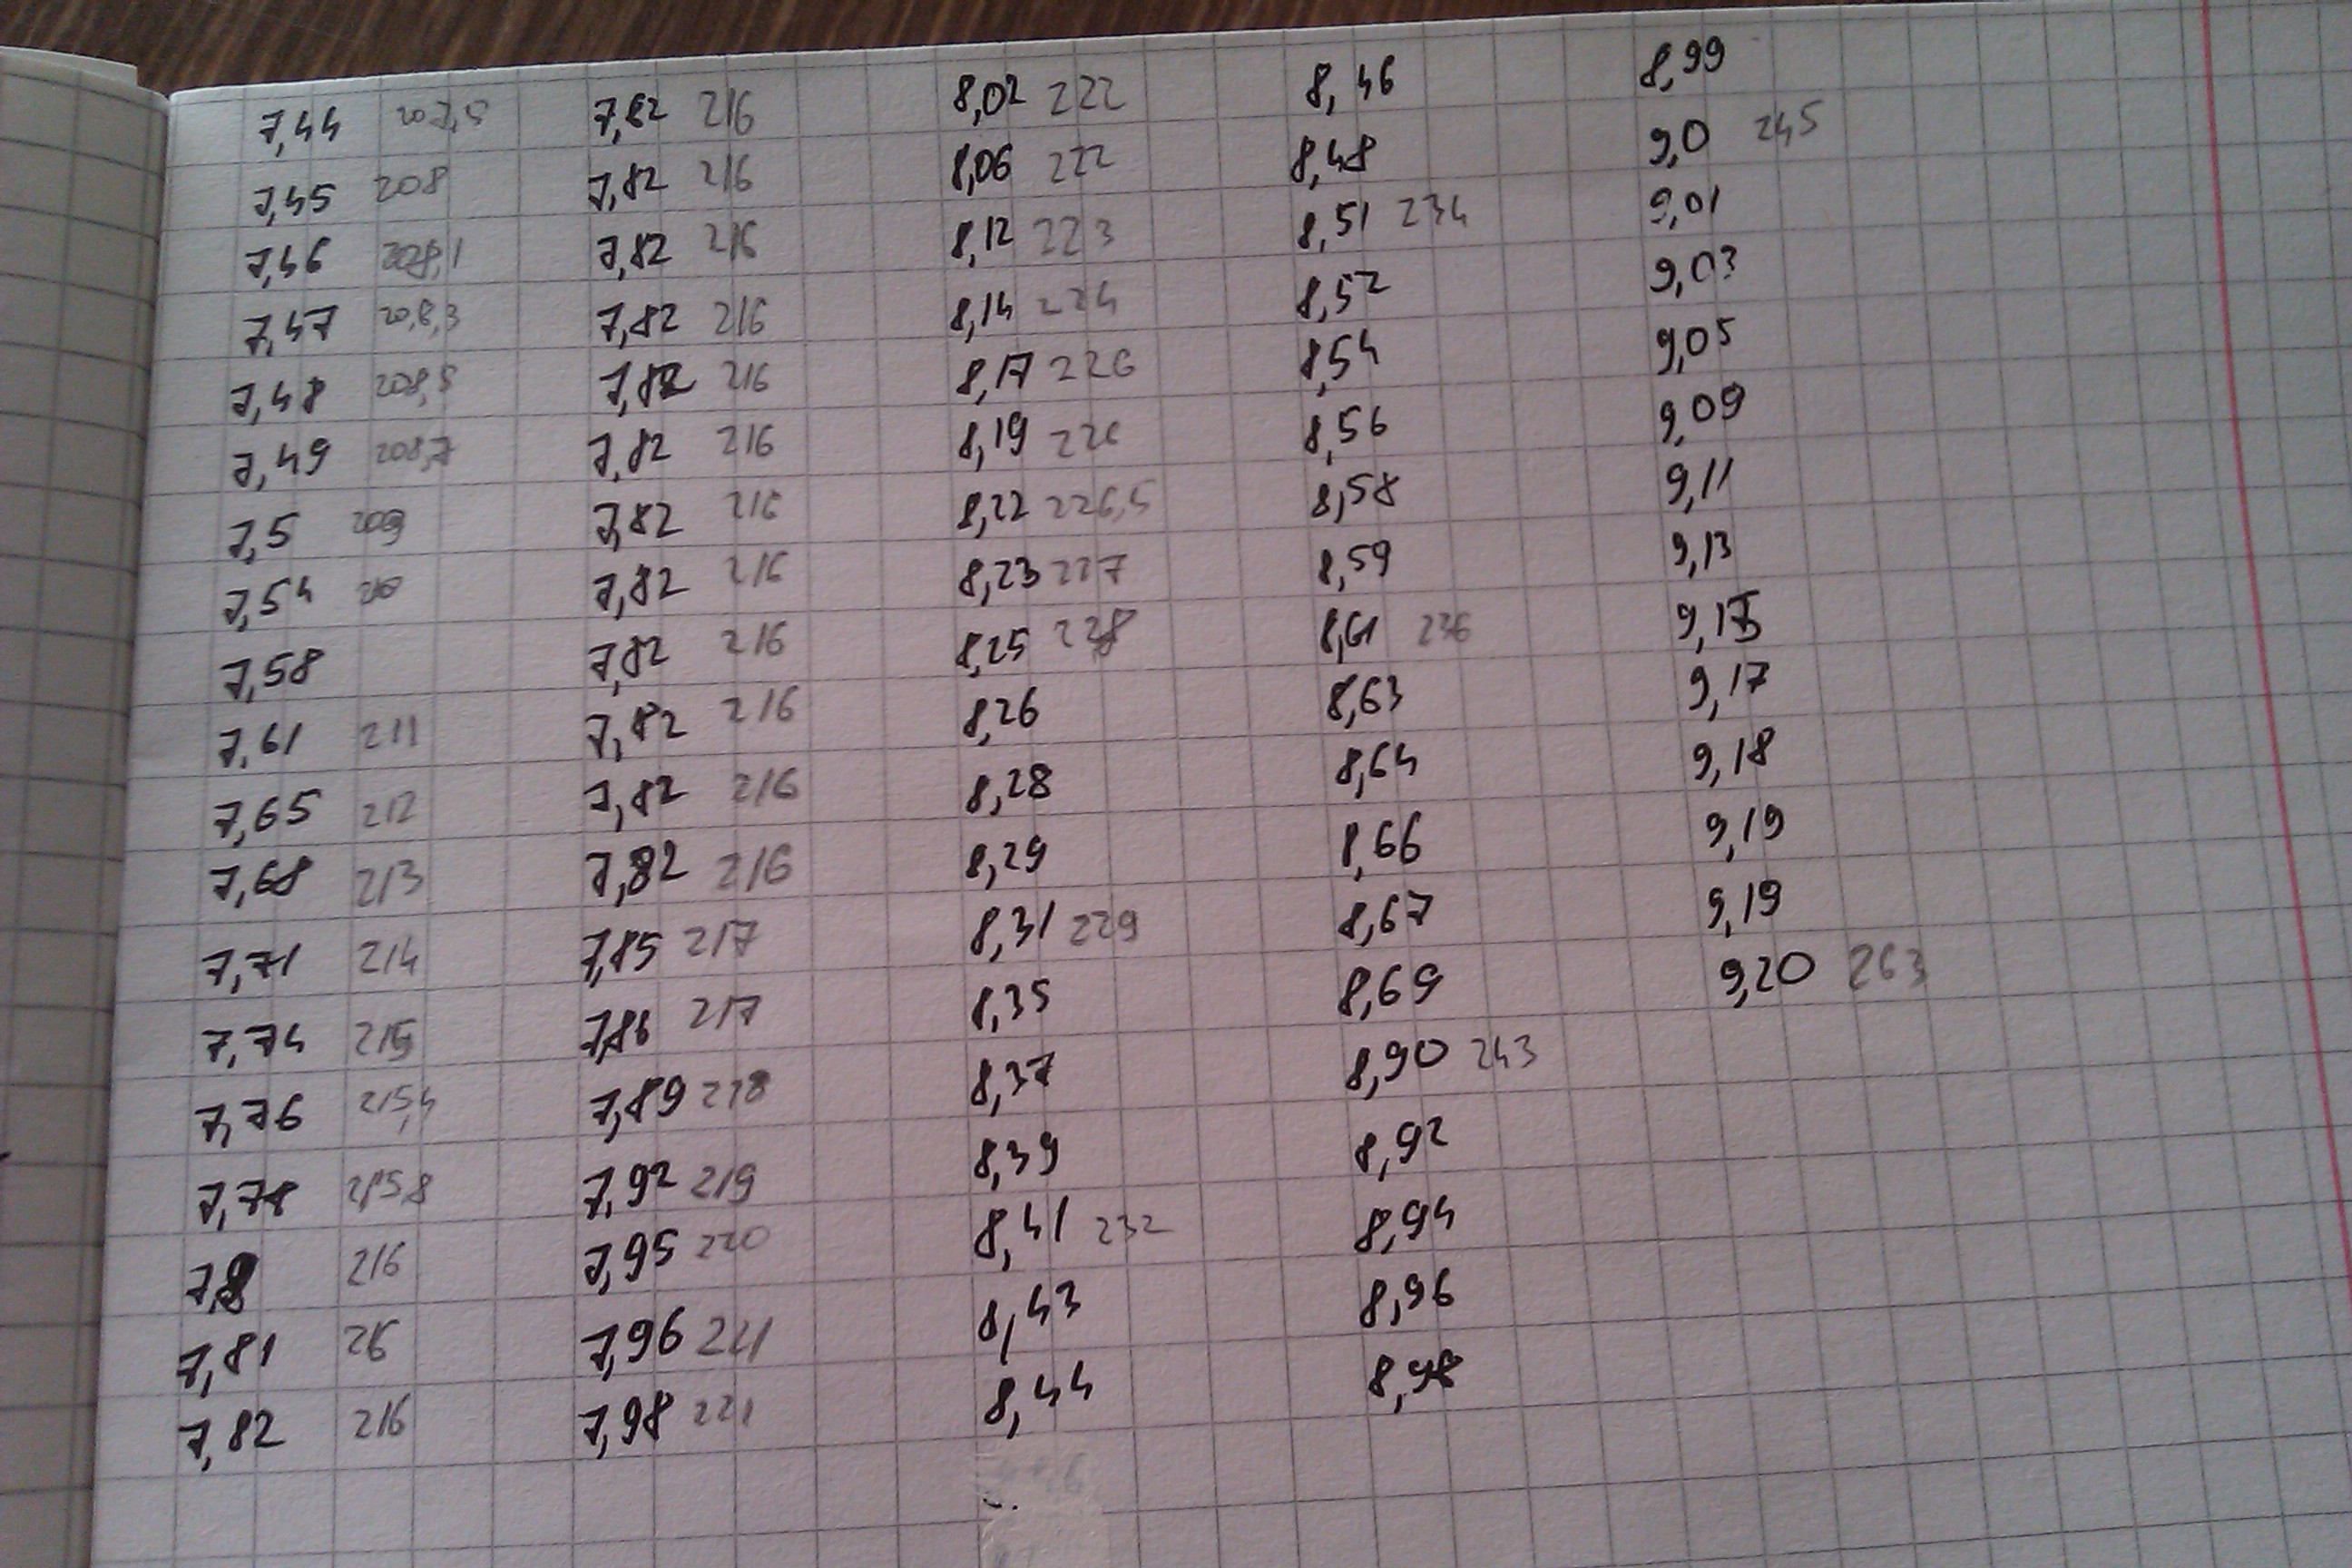 7,44 207,5
7,45 208
7,46 208,1
7,47 208,3
7,48 208,5
7,49 208,7
7,5 209
7,54 210
7,58
7,61 211
7,65 212
7,68 213
7,71 214
7,74 215
7,76 215,4
7,78 215,8
7,8 216
7,81 216
7,82 216
7,82 216
7,82 216
7,82 216
7,82 216
7,82 216
7,82 216
7,82 216
7,82 216
7,82 216
7,82 216
7,82 216
7,82 216
7,85 217
7,86 217
7,89 218
7,92 219
7,95 220
7,96 221
7,98 221
8,02 222
8,06 222
8,12 223
8,14 224
8,17 226
8,19 226
8,22 226,5
8,23 227
8,25 228
8,26
8,28
8,29
8,31 229
8,35
8,37
8,39
8,41 232
8,43
8,44
8,46
8,48
8,51 234
8,52
8,54
8,56
8,58
8,59
8,61 236
8,63
8,64
8,66
8,67
8,69
8,90 243
8,92
8,94
8,96
8,98
8,99
9,0 245
9,01
9,03
9,05
9,09
9,11
9,13
9,15
9,17
9,18
9,19
9,19
9,20 263